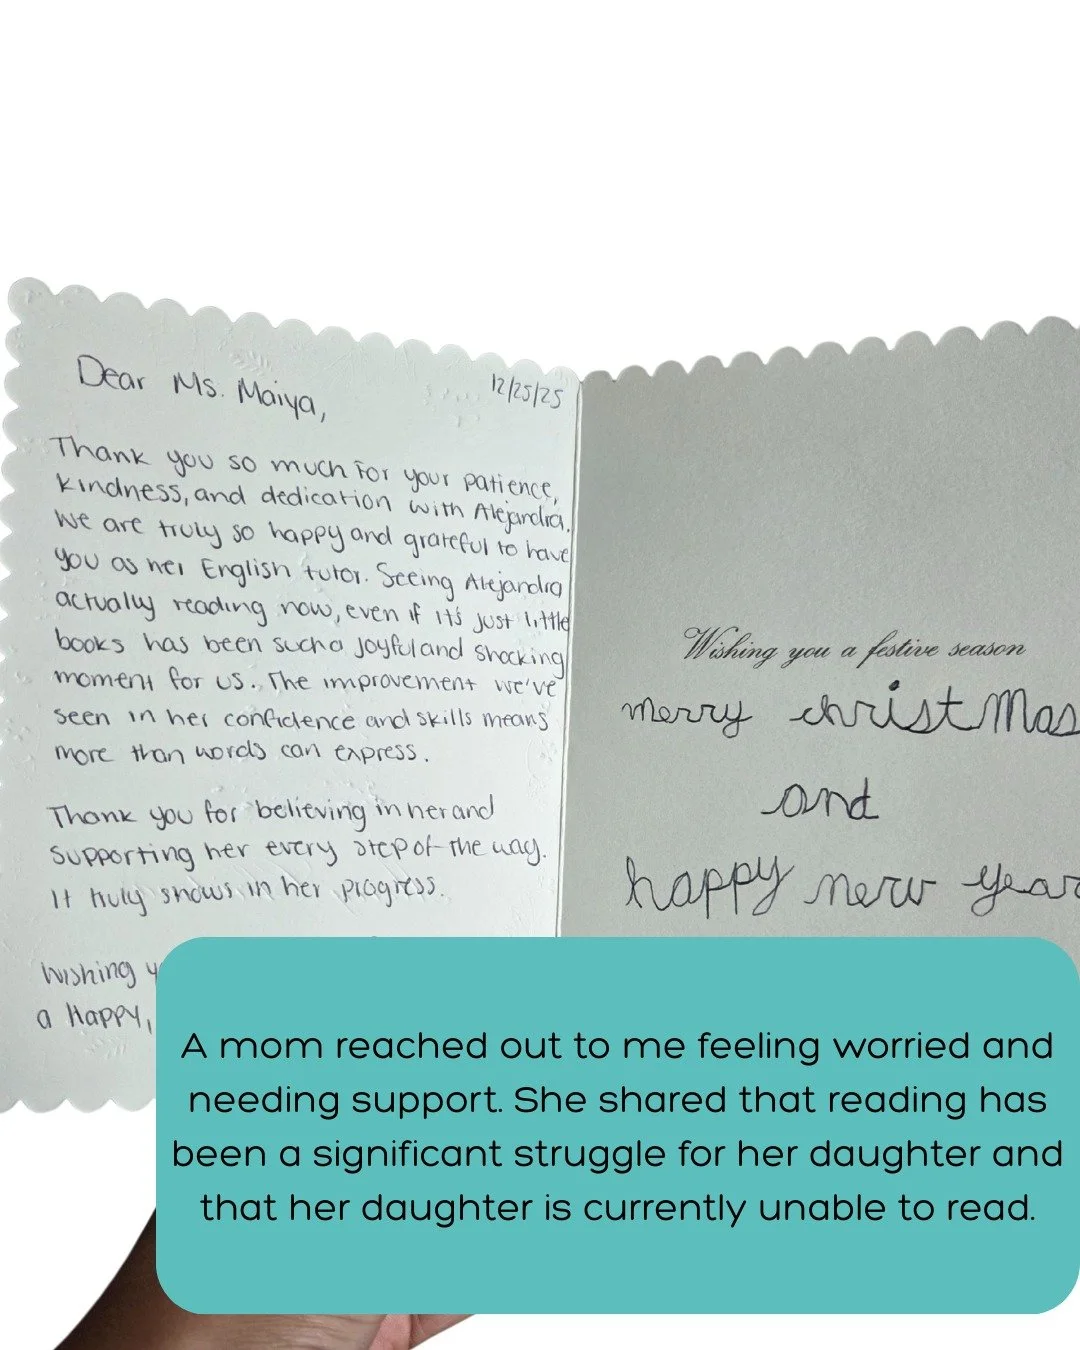 Dear Ms. Maiya,
12/25/25
Thank you so much for your patience,
kindness, and dedication with Alejandra.
We are truly so happy and grateful to have
you as her English tutor. Seeing Alejandra
actually reading now, even if it's just little
books has been such a joyful and shocking
moment for us. The improvement we've
seen in her confidence and skills means
more than words can express.
Thank you for believing in her and
supporting her every step of the way.
It truly shows in her progress.
Wishing y
a Happy,
Wishing you a festive season
merry christmas
and
happy new year
A mom reached out to me feeling worried and
needing support. She shared that reading has
been a significant struggle for her daughter and
that her daughter is currently unable to read.